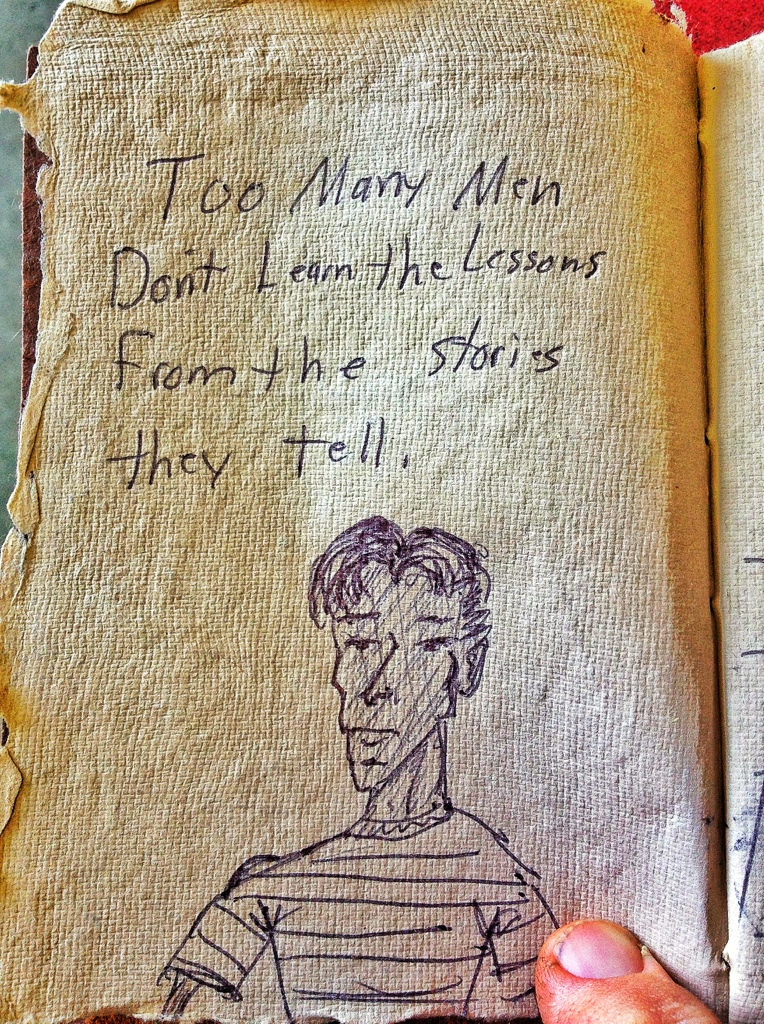 Too Many Men
Don't Learn the Lessons
From the stories
they tell.